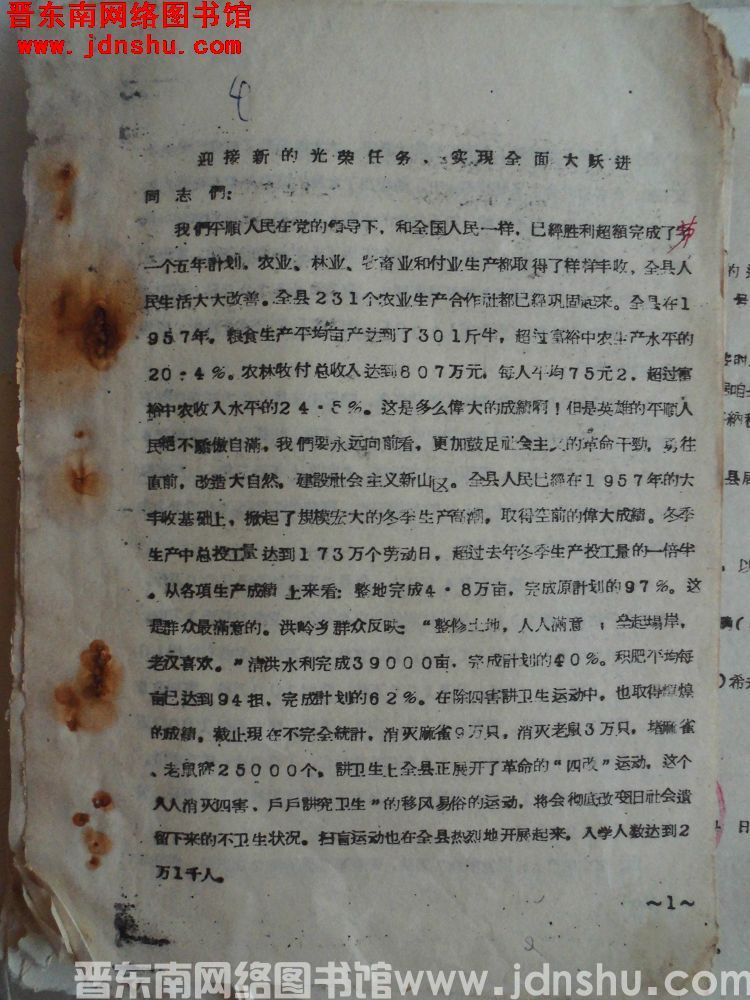 晋东南网络图书馆
www.jdnshu.com
4
迎接新的光荣任务、实现全面大跃进
同志們：
我們平順人民在党的領导下，和全国人民一样，已經胜利超額完成了第
一个五年計划。农业、林业、牧畜业和付业生产都取得了样样丰收，全县人
民生活大大改善。全县231个农业生产合作社都已經巩固起来。全县在1
957年。粮食生产平均亩产达到了301斤半，超过富裕中农生产水平的
20·4％。农林牧付总收入达到807万元，每人平均75元2，超过富
裕中农收入水平的24·5％。这是多么偉大的成績啊！但是英雄的平順人
民絕不驕傲自滿。我們要永远向前看，更加鼓足社会主义的革命干勁，勇往
直前，改造大自然。建設社会主义新山区。全县人民已經在1957年的大
丰收基础上，掀起了規模宏大的冬季生产高潮，取得空前的偉大成績。冬季
生产中总投工量达到173万个劳动日，超过去年冬季生产投工量的一倍半
。从各項生产成績上来看：整地完成4·8万亩，完成原計划的97％。这
是群众最滿意的。洪岭乡群众反映：“整修土地，人人滿意；垒起塌岸，
老汉喜欢。”清洪水利完成39000亩，完成計划的40％。积肥平均每
亩已达到94担，完成計划的62％。在除四害講卫生运动中，也取得輝煌
的成績。截止現在不完全統計，消灭麻雀9万只，消灭老鼠3万只，堵麻雀
、老鼠窩25000个。講卫生上全县正展开了革命的“四改”运动，这个
“人人消灭四害、戶戶講究卫生”的移风易俗的运动，将会彻底改变旧社会遺
留下来的不卫生状况。扫盲运动也在全县热烈地开展起来。入学人数达到2
万1千人。
～1～
晋东南网络图书馆www.jdnshu.com